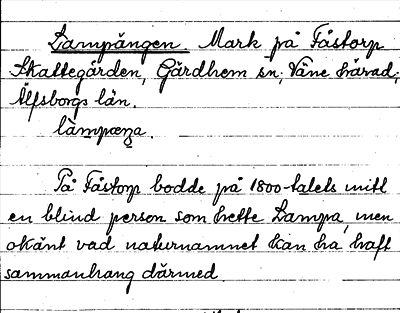 Lampängen. Mark på Fåstorp
Skattegården, Gärdhem sn, Väne härad,
Älfsborgs län.
lämpæŋa.
På Fåstorp bodde på 1800-talets mitt
en blind person som hette Lampa, men
okänt vad naturnamnet kan ha haft
sammanhang därmed.